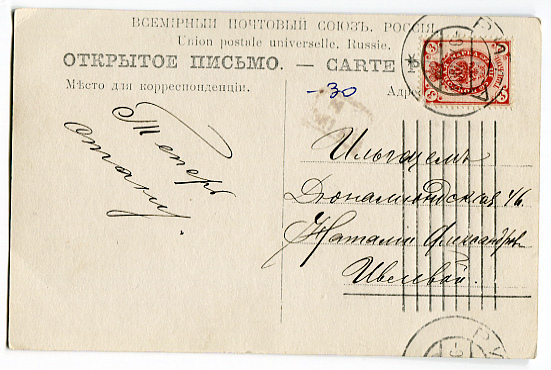 ВСЕМІРНЫЙ ПОЧТОВЫЙ СОЮЗЪ. РОССІЯ
Union postale universelle. Russie.
ОТКРЫТОЕ ПИСЬМО. — CARTE P
Мѣсто для корреспонденціи.
Адре
-30
Теперь
Ильгецемъ
Наталіи Александров
Ивелевой.
3
3
РИ
РИ